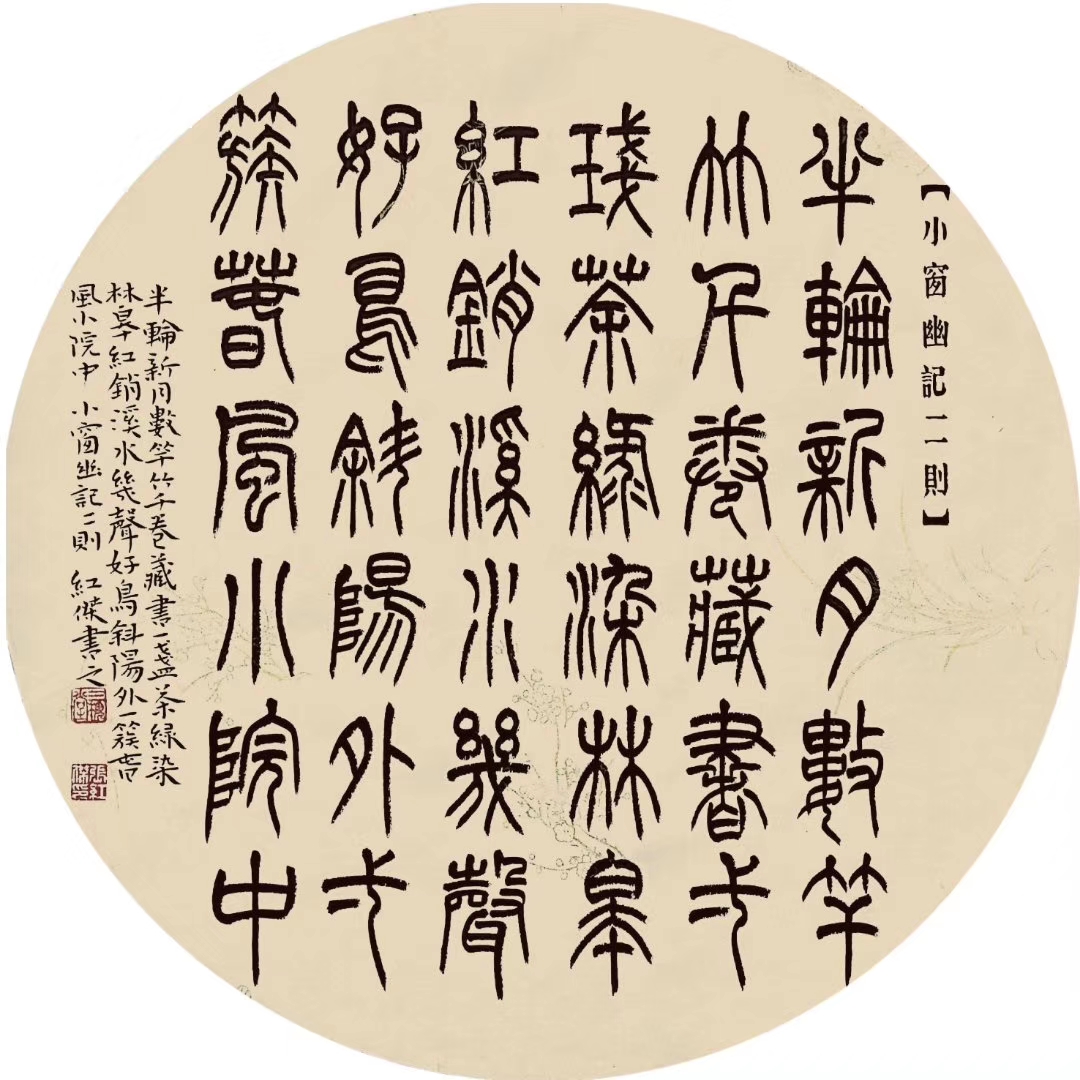 【小窗幽記二則】
半輪新月數竿
竹千卷藏書弌
琖茶綠染林皋
紅銷溪水幾聲
好鳥斜陽外弌
簇春風小院中
半輪新月數竿竹千卷藏書一盞茶緑染
林皋紅銷溪水幾聲好鳥斜陽外一簇春
風小院中 小窗幽記一則 紅傑書之
張紅傑印